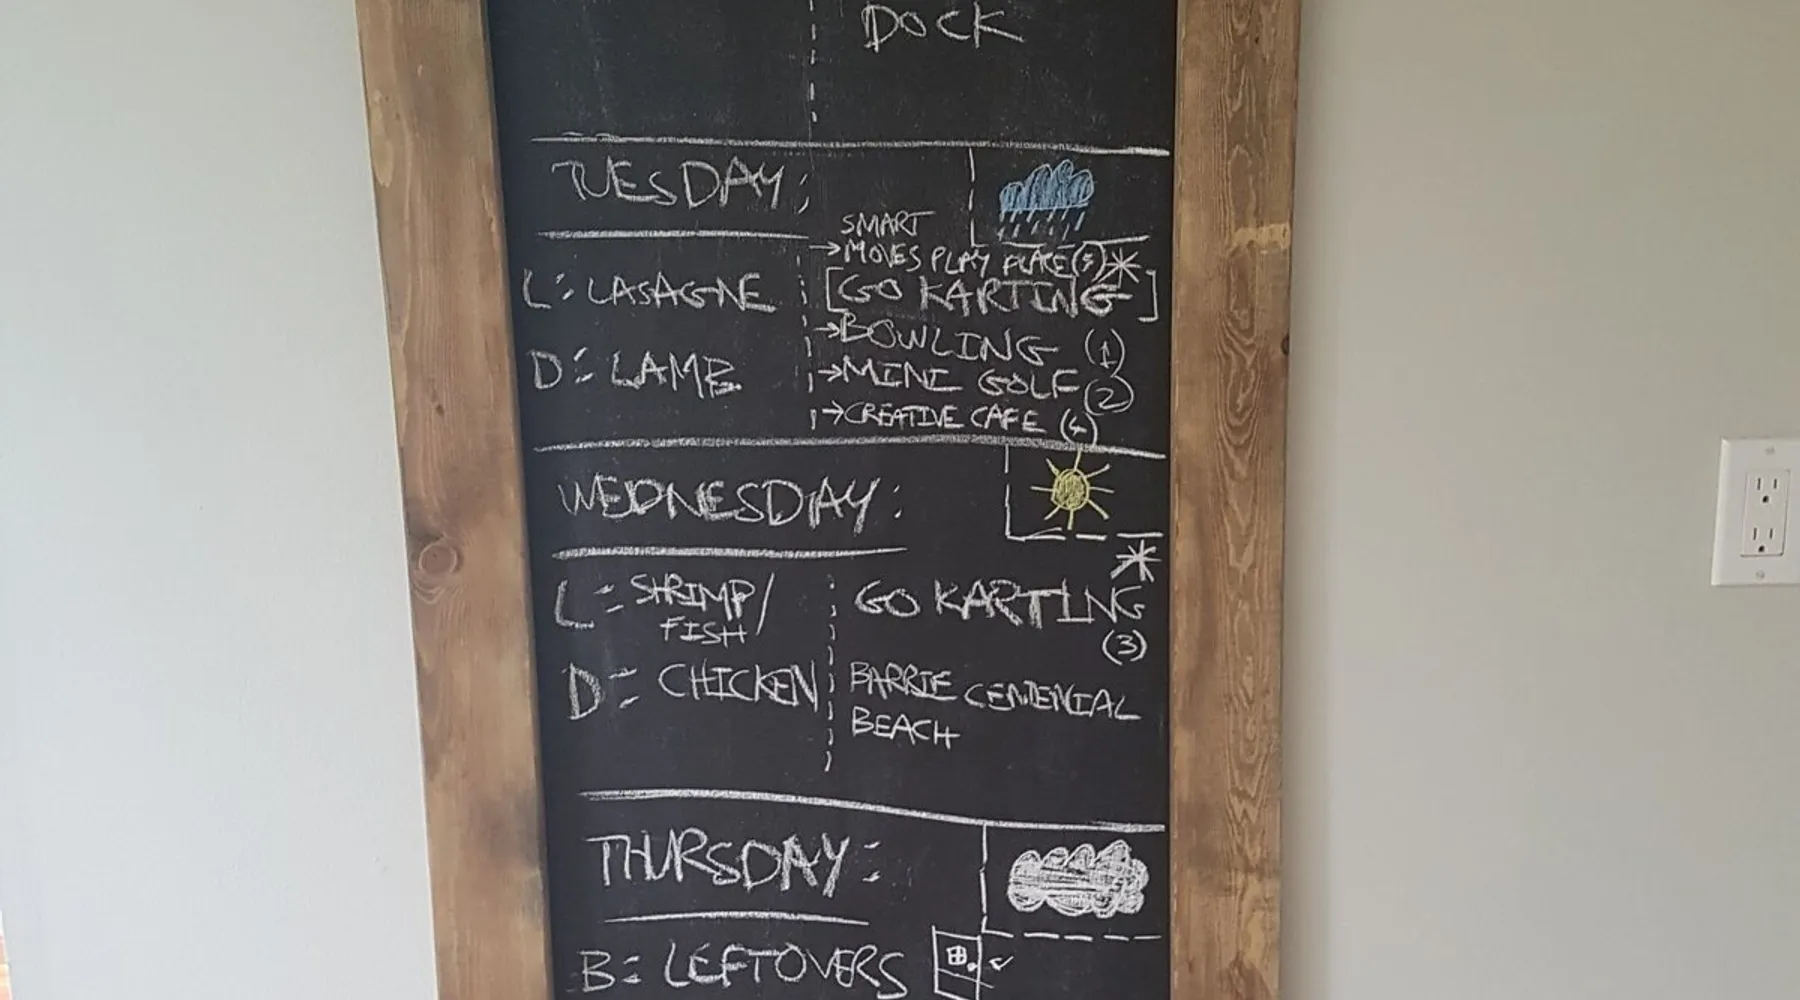 DOCK
TUESDAY:
SMART
→MOVES PLAY PLACE (5) *
L: LASAGNE
[GO KARTING]
→BOWLING (1)
D: LAMB
→MINI GOLF (2)
→CREATIVE CAFE (4)
WEDNESDAY:
*
L: SHRIMP/
FISH
GO KARTING
(3)
D: CHICKEN
BARRIE CENTENIAL
BEACH
THURSDAY:
B: LEFTOVERS